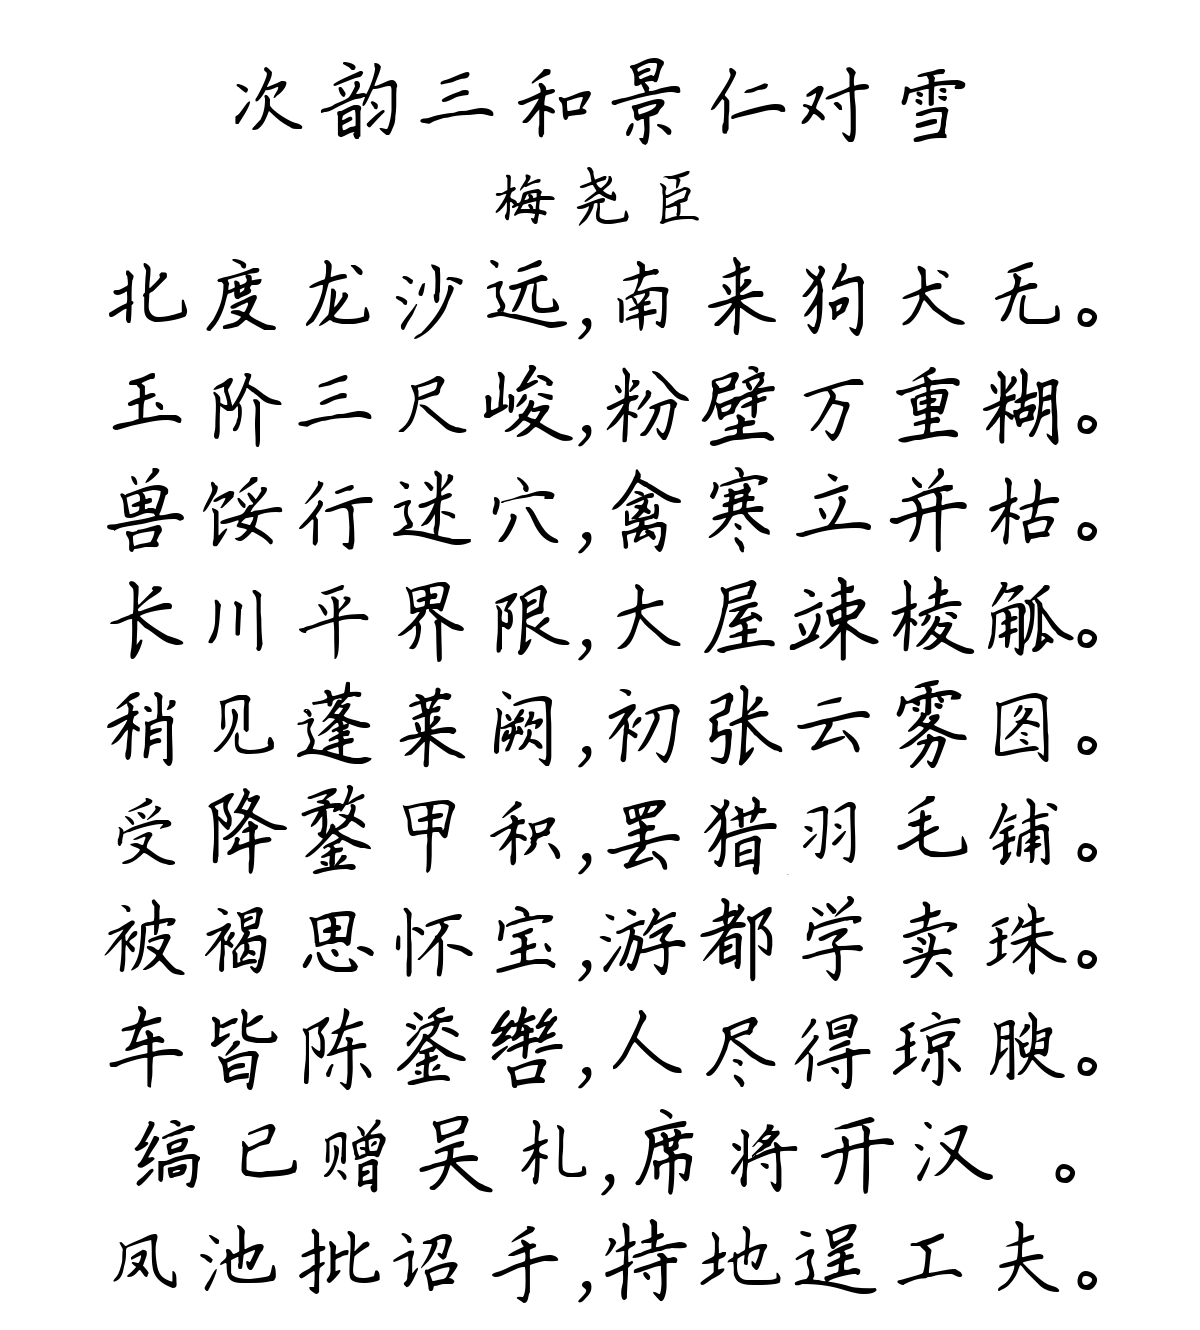 次韵三和景仁对雪
梅尧臣
北度龙沙远,南来狗犬无。
玉阶三尺峻,粉壁万重糊。
兽馁行迷穴,禽寒立并枯。
长川平界限,大屋竦棱觚。
稍见蓬莱阙,初张云雾图。
受降鍪甲积,罢猎羽毛铺。
被褐思怀宝,游都学卖珠。
车皆陈鋈辔,人尽得琼腴。
缟已赠吴札,席将开汉 。
凤池批诏手,特地逞工夫。